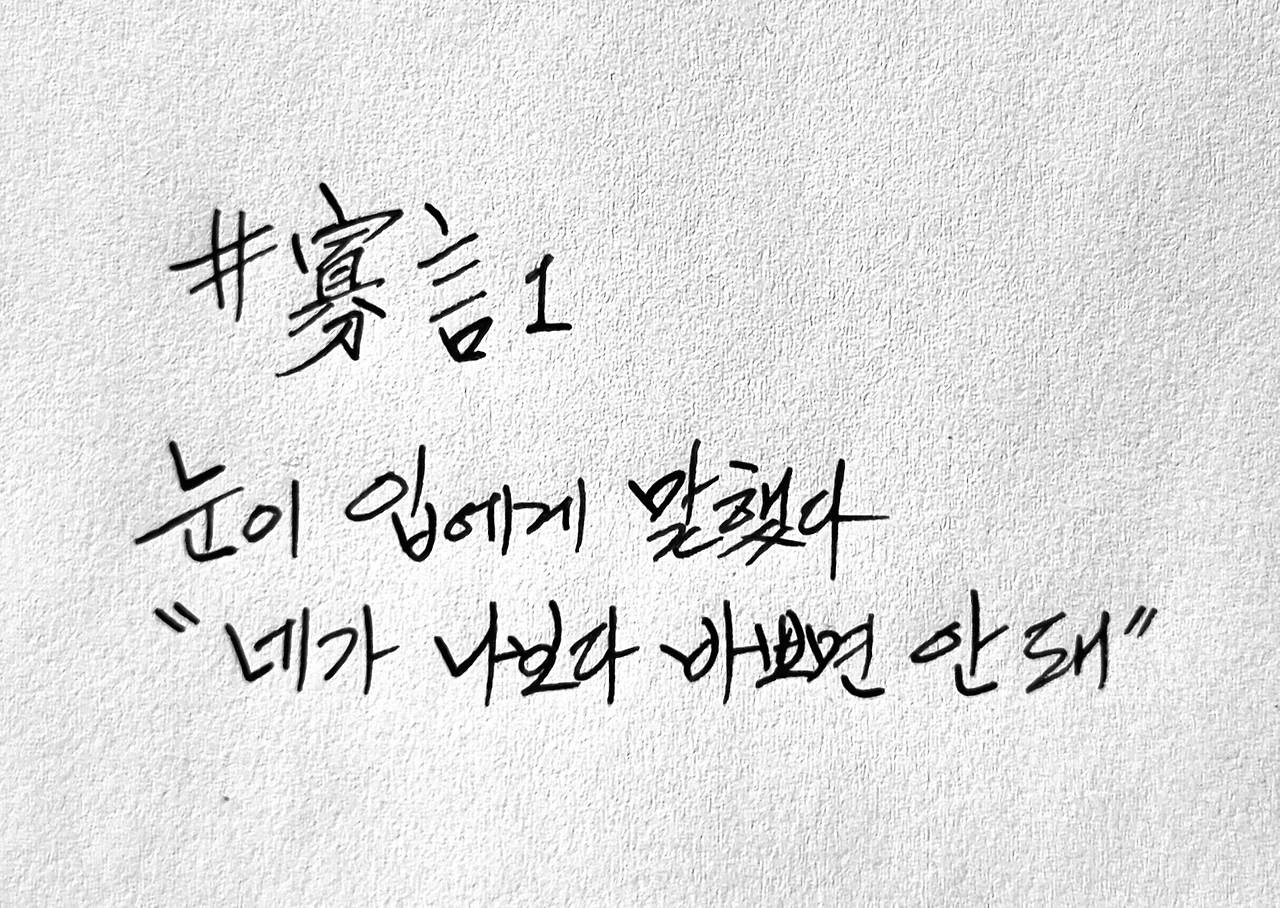 #寡言1
눈이 입에게 말했다
"네가 나보다 바쁘면 안 돼"